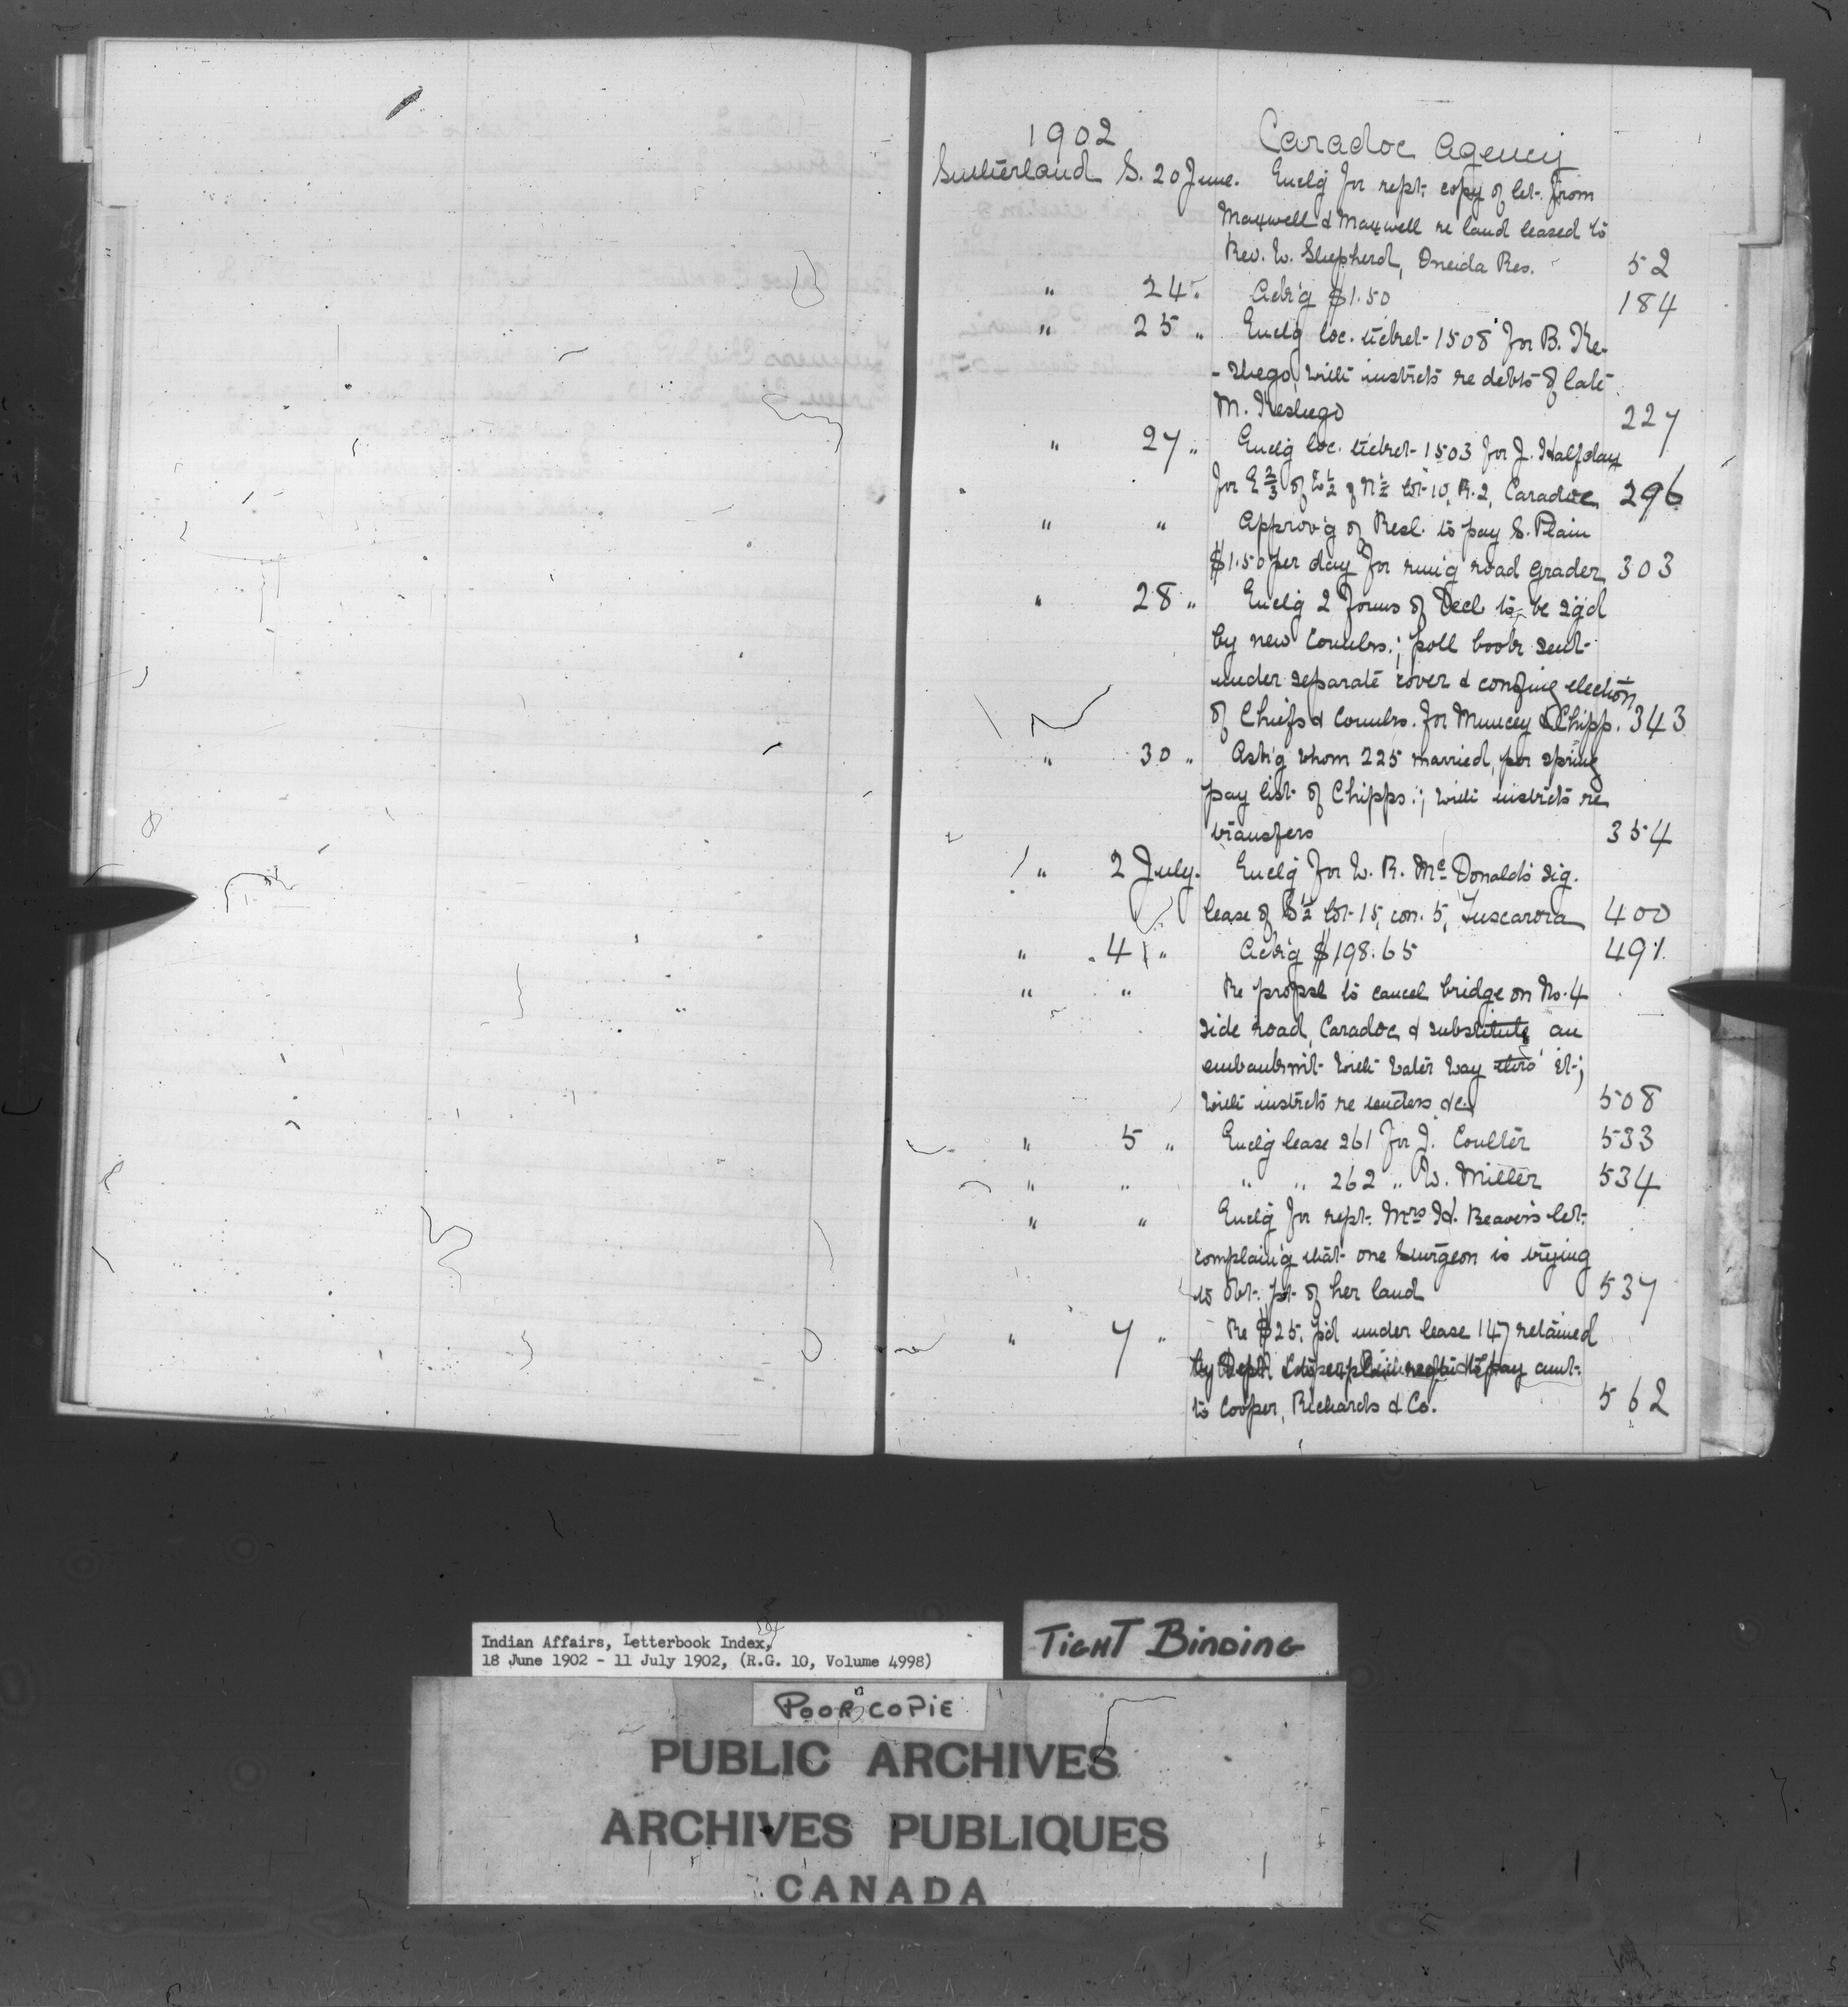 1902 Caradoc Agency
Sutherland S. 20 June. Enclg for rept. copy of let. from
Maxwell & Maxwell re land leased to
Rev. E. Shepherd, Oneida Res. 52
" 24 " Ack'g $1.50 184
" 25 " Enclg loc. ticket 1508 for B. Ke-
-shego, with instrcts re debts of late
M. Keshego 227
" 27 " Enclg loc. ticket 1503 for J. Halfday
for E 2/3 of E 1/2 of N 1/2 lot 10, R. 2, Caradoc 296
" " Approv'g of Resl. to pay S. Plain
$1.50 per day for run'g road grader 303
" 28 " Enclg 2 forms of Decl to be sg'd
by new Counlrs.; poll book sent
under separate cover & confing election
of Chiefs & Counlrs. for Muncey & Chipp. 343
" 30 " Ask'g whom 225 married, per spring
pay list of Chipps.; with instrcts re
transfers 354
" 2 July. Enclg for W. R. McDonald's sig.
lease of S 1/2 lot 15, con. 5, Tuscarora 400
" 4 " Ack'g $198.65 491
" " Re propsl to cancel bridge on No. 4
side road, Caradoc, & substitute an
embankm't with water way thro' it;
with instrcts re tenders &c. 508
" 5 " Enclg lease 261 for J. Coulter 533
" " " " 262 " W. Miller 534
" " Enclg for rept. Mrs H. Beaver's let.
complain'g that one Sturgeon is trying
to obt. pt. of her land 537
" 7 " Re $25. p'd under lease 147 retained
by Dept. pay amt.
to Cooper, Richards & Co. 562
Indian Affairs, Letterbook Index,
18 June 1902 - 11 July 1902, (R.G. 10, Volume 4998)
TIGHT BINDING
POOR COPIE
PUBLIC ARCHIVES
ARCHIVES PUBLIQUES
CANADA